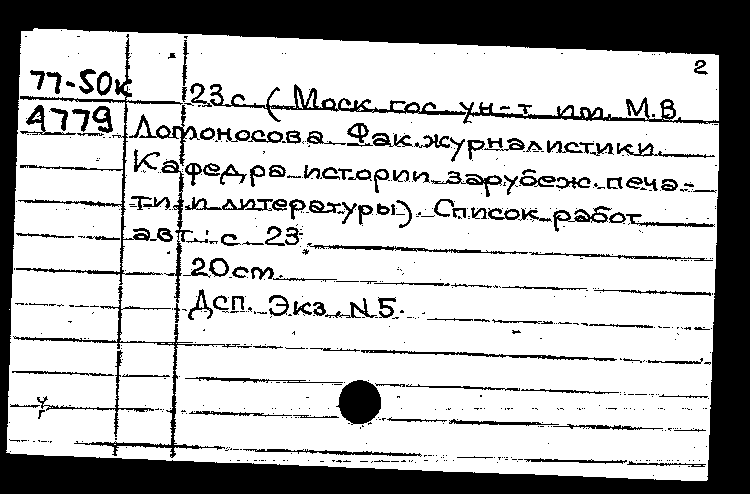 2
77-50к
А779
23 с. (Моск. гос. ун-т им. М.В.
Ломоносова Фак. журналистики.
Кафедра истории зарубеж. печа-
ти и литературы). Список работ
авт.: с. 23.
20 см.
Дсп. Экз. N 5.